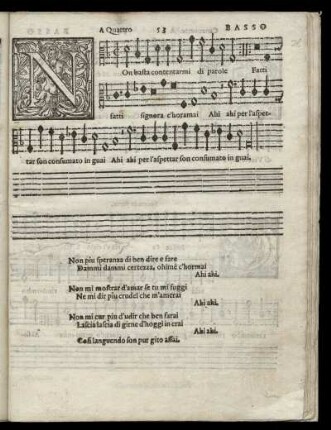 A Quattro 53 BASSO
N
On basta contentarmi di parole Fatti
fatti signora c'horamai Ahi ahi per l'aspet-
tar son consumato in guai Ahi ahi per l'aspettar son consumato in guai.
Non piu speranza di ben dire e fare
Dammi dammi certezza, ohime c'hormai
Ahi ahi.
Non mi mostrar d'amar se tu mi fuggi
Ne mi dir piu crudel che m'amerai
Ahi ahi.
Non mi cur piu d'udir che ben farai
Lascia lascia di girne d'hoggi in crai
Ahi ahi.
Così languendo son pur gito assai.